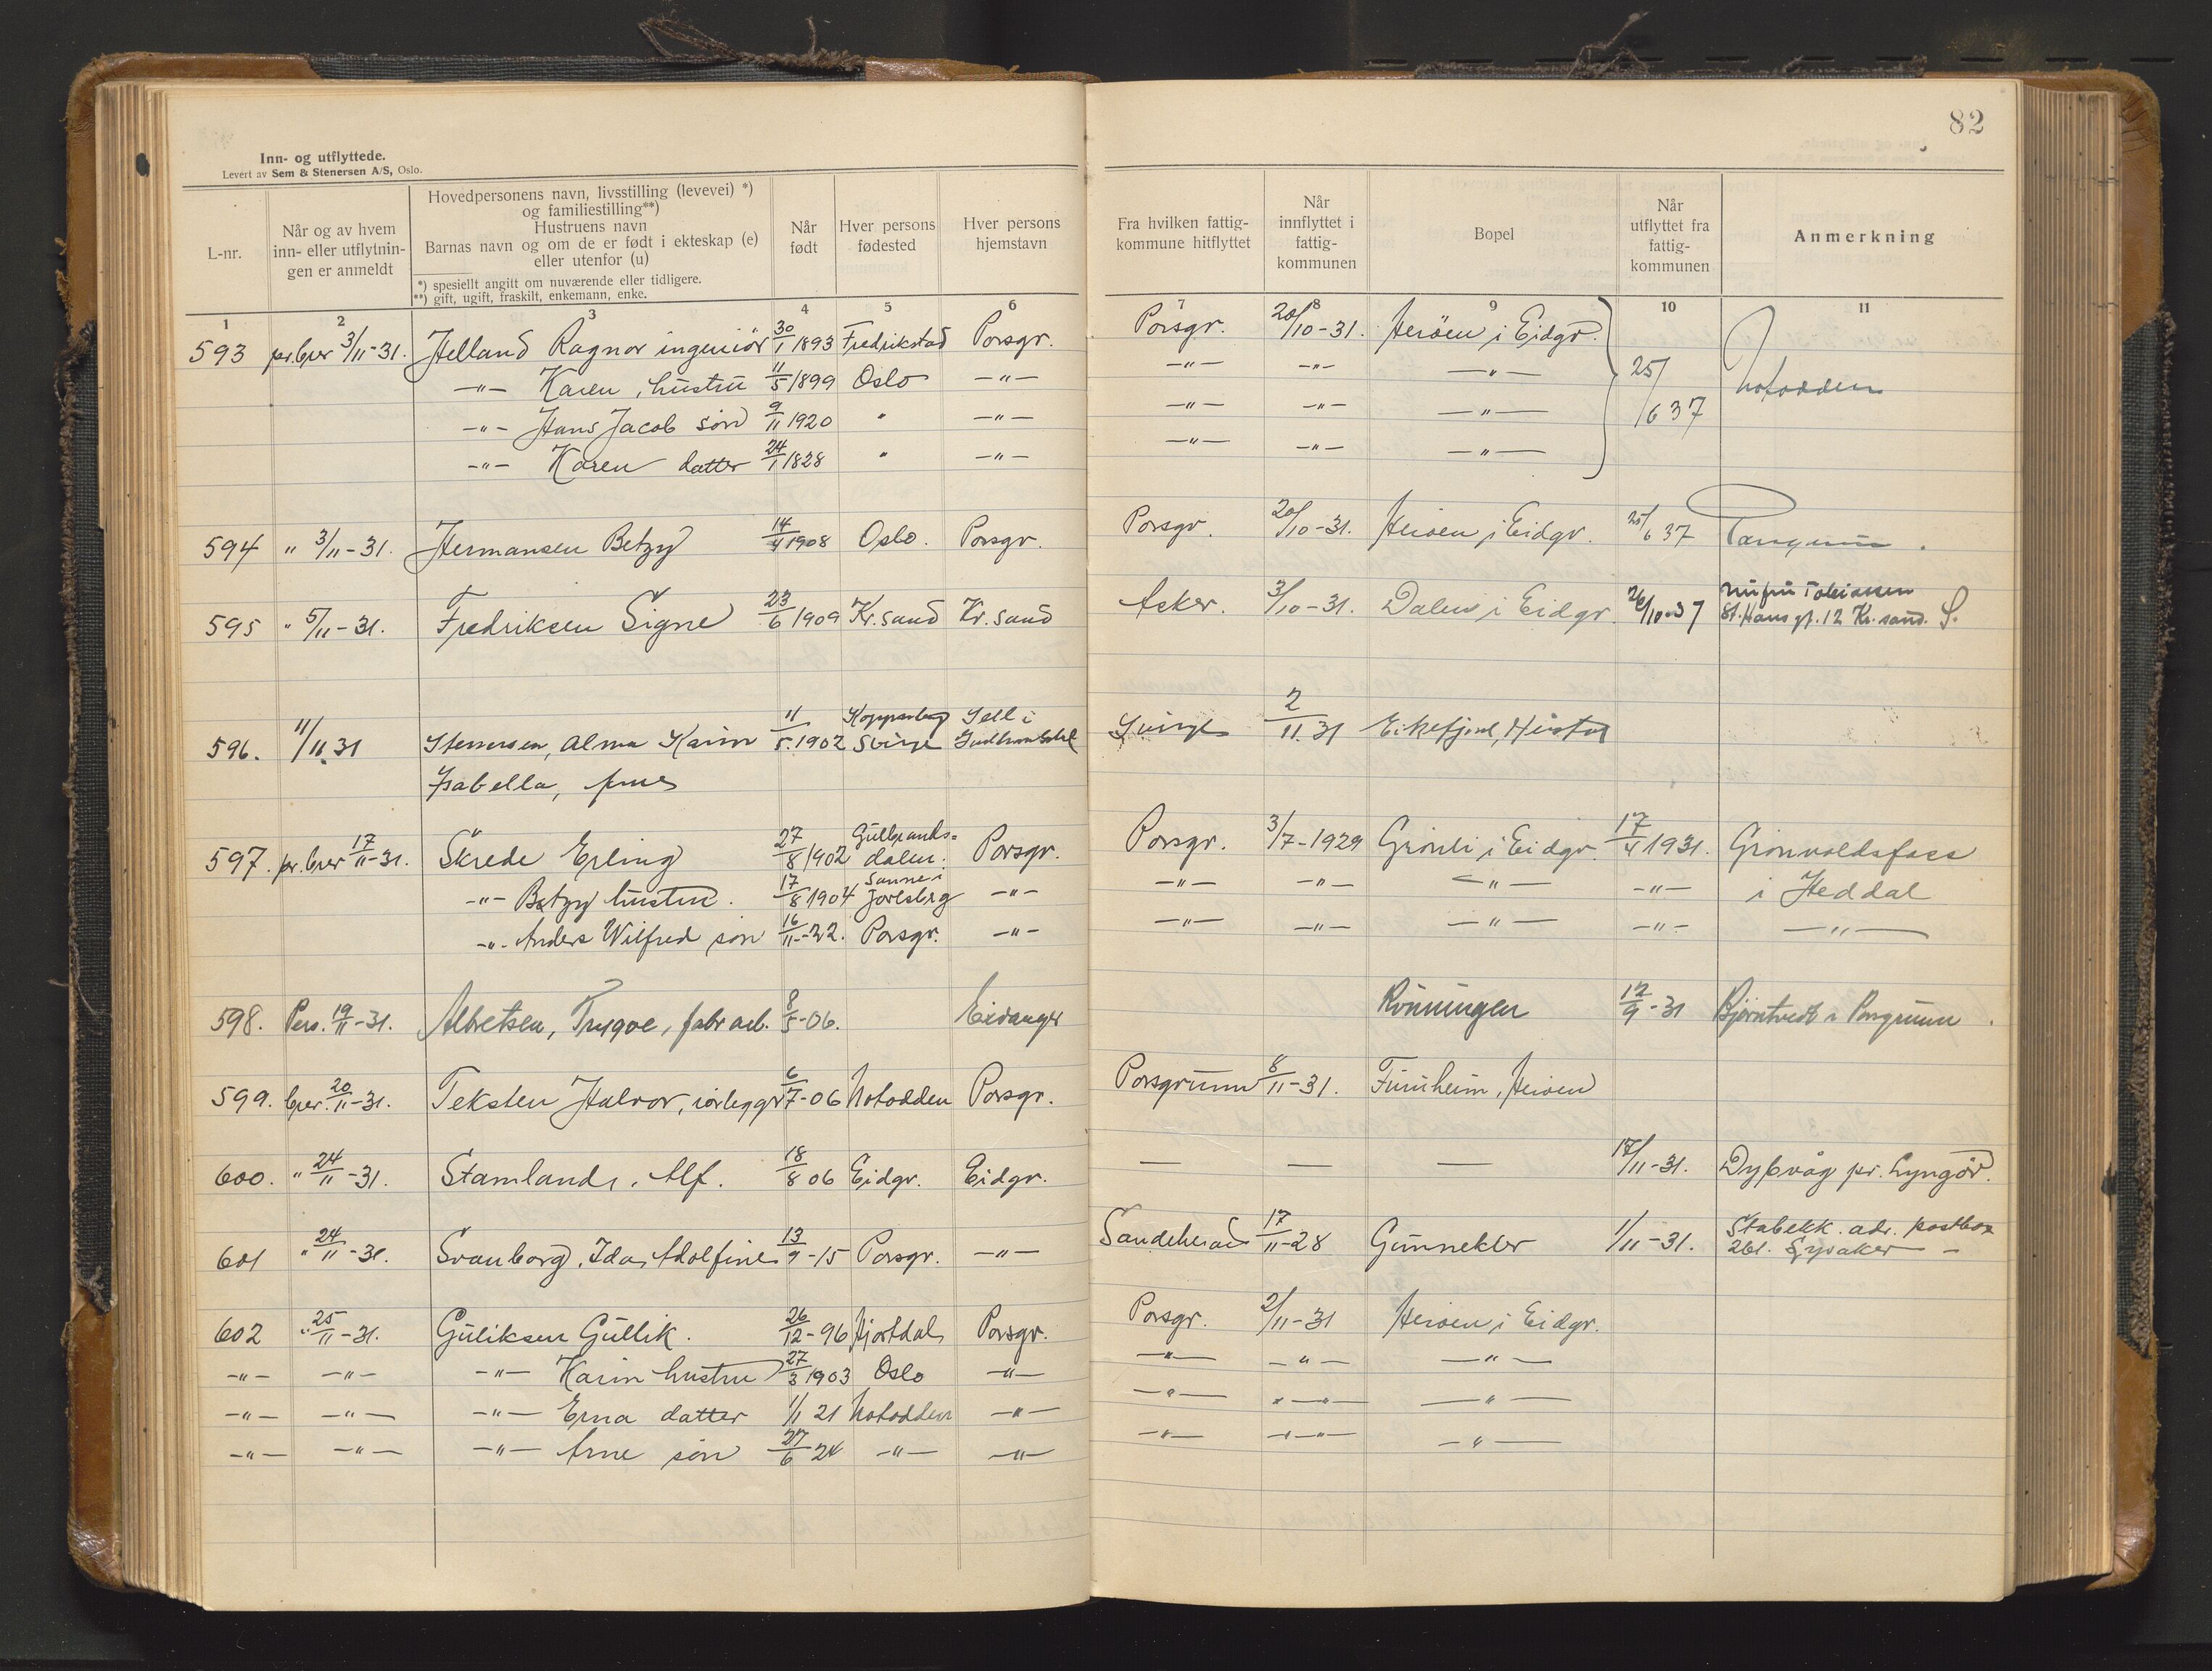 82
Inn- og utflyttede.
Levert av Sem & Stenersen A/S, Oslo.
L-nr.
Når og av hvem inn- eller utflytnin-gen er anmeldt
Hovedpersonens navn, livsstilling (levevei) *)
og familiestilling**)
Hustruens navn
Barnas navn og om de er født i ekteskap (e)
eller utenfor (u)
*) spesiellt angitt om nuværende eller tidligere.
**) gift, ugift, fraskilt, enkemann, enke.
Når født
Hver persons fødested
Hver persons hjemstavn
Fra hvilken fattig-kommune hitflyttet
Når innflyttet i fattig-kommunen
Bopel
Når utflyttet fra fattig-kommunen
Anmerkning
1 2 3 4 5 6 7 8 9 10 11
593 pr. brev 3/11-31. Helland Ragnar ingeniör 30/1 1893 Fredrikstad Porsgr. Porsgr. 20/10-31. Heröen i Eidgr. 25/6 37 Notodden
-"- Karen, hustru 11/5 1899 Oslo -"- -"- -"- -"-
-"- Hans Jacob sön 9/11 1920 " -"- -"- -"- -"-
-"- Karen datter 24/1 1828 " -"- -"- -"- -"-
594 " 3/11-31. Hermansen Betzy 14/4 1908 Oslo. Porsgr. Porsgr. 20/10-31. Heröen i Eidgr. 25/6 37
595 " 5/11-31. Fredriksen Signe 23/6 1909 Kr.sand Kr.sand Asker. 3/10-31. Dalen i Eidgr. 26/10-37 nu fru Tobiassen
St. Hans gt. 12 Kr.sand. S.
596. 11/11 31 Stenersen, Alma Karin 11/5 1902 Kopparberg Sverige Sell i Gudbrandsdal Sverige 2/11 31 Eikefjord, Herøya
Isabella, frue
597. pr. brev 17/11-31. Skrede Erling 27/8 1902 Gulbrands-dalen. Porsgr. Porsgr. 3/7-1929 Grönli i Eidgr. 17/4 1931. Grönvoldsfoss
-"- Betzy hustru. 17/8 1904 Sanne i Jarlsbrg -"- -"- -"- -"- -"- i Heddal
-"- Anders Wilfred sön 16/11-22. Porsgr. -"- -"- -"- -"- -"- -"-
598. Pers. 19/11-31. Albretsen, Trygve, fabr arb. 8/5-06. Eidanger Rönningen 12/9-31 Bjørntvedt i Porsgrunn.
599. brev. 20/11-31. Teksten Halvor, rörleggr 6/7-06 Notodden Porsgr. Porsgrunn 8/11-31. Furuheim, Heröen
600. " 24/11-31. Stamland, Alf. 18/8 06 Eidgr. Eidgr. — — — 17/11-31. Dybvåg pr. Lyngör.
601 " 24/11-31. Svanborg, Ida, Adolfine 13/9-15 Porsgr. -"- Sandeherad 17/11-28 Gunnekler 1/11-31. Stabekk. adr. postbox
261. Lysaker -
602 " 25/11-31. Guliksen Gullik. 26/12-96 Hjortdal Porsgr. Porsgr. 2/11-31 Heröen i Eidgr.
-"- -"- -"- Karin hustru 27/3 1903 Oslo -"- -"- -"- -"-
-"- -"- -"- Erna datter 1/1 21 Notodden -"- -"- -"- -"-
-"- -"- -"- Arne sön 27/6 24 -"- -"- -"- -"- -"-